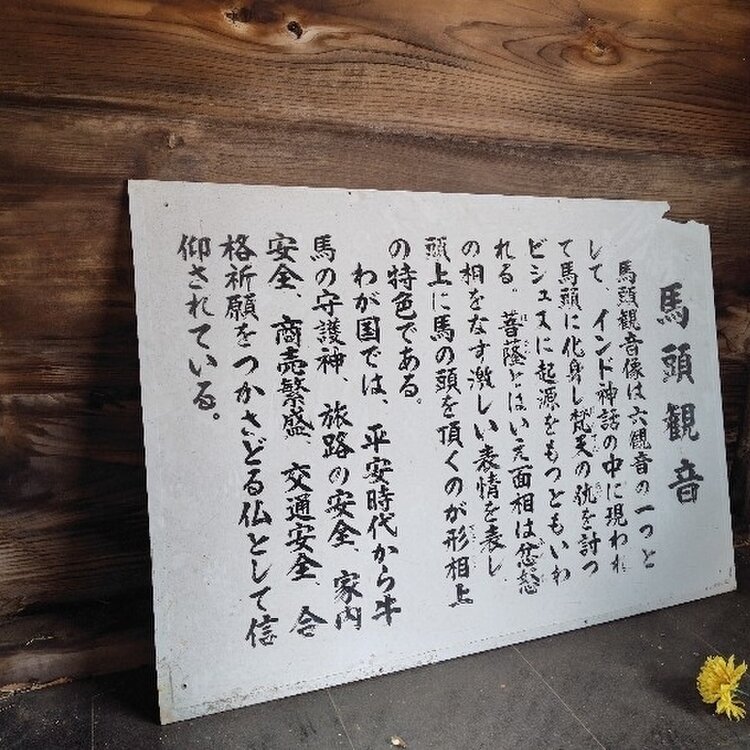 馬頭観音
馬頭観音像は六観音の一つと
して、インド神話の中に現われ
て馬頭に化身し梵天の仇を討つ
ビシュヌに起源をもつともいわ
れる。菩薩とはいえ面相は忿怒
の相をなす激しい表情を表し
頭上に馬の頭を頂くのが形相上
の特色である。
わが国では、平安時代から牛
馬の守護神、旅路の安全、家内
安全、商売繁盛、交通安全、合
格祈願をつかさどる仏として信
仰されている。